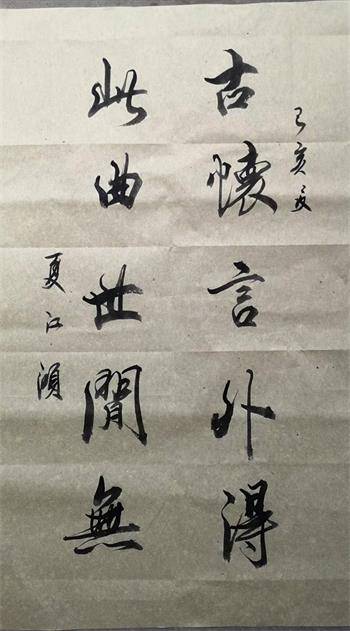 己亥夏
古懷言外得
此曲世閒無
夏江